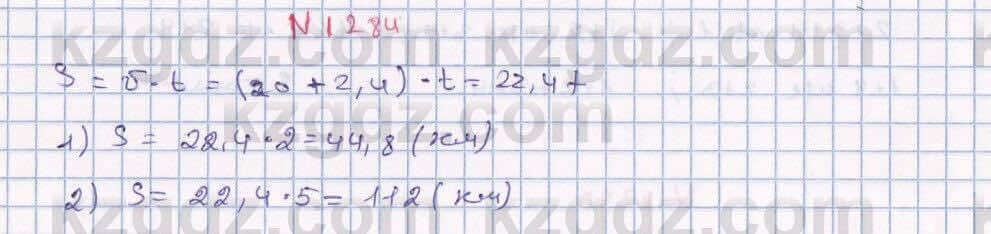 N 1284
S = υ · t = (20 + 2,4) · t = 22,4t
1) S = 22,4 · 2 = 44,8 (км)
2) S = 22,4 · 5 = 112 (км)
kzgdz.com kzgdz.com
kzgdz.com
kzgdz.com kzgdz.com